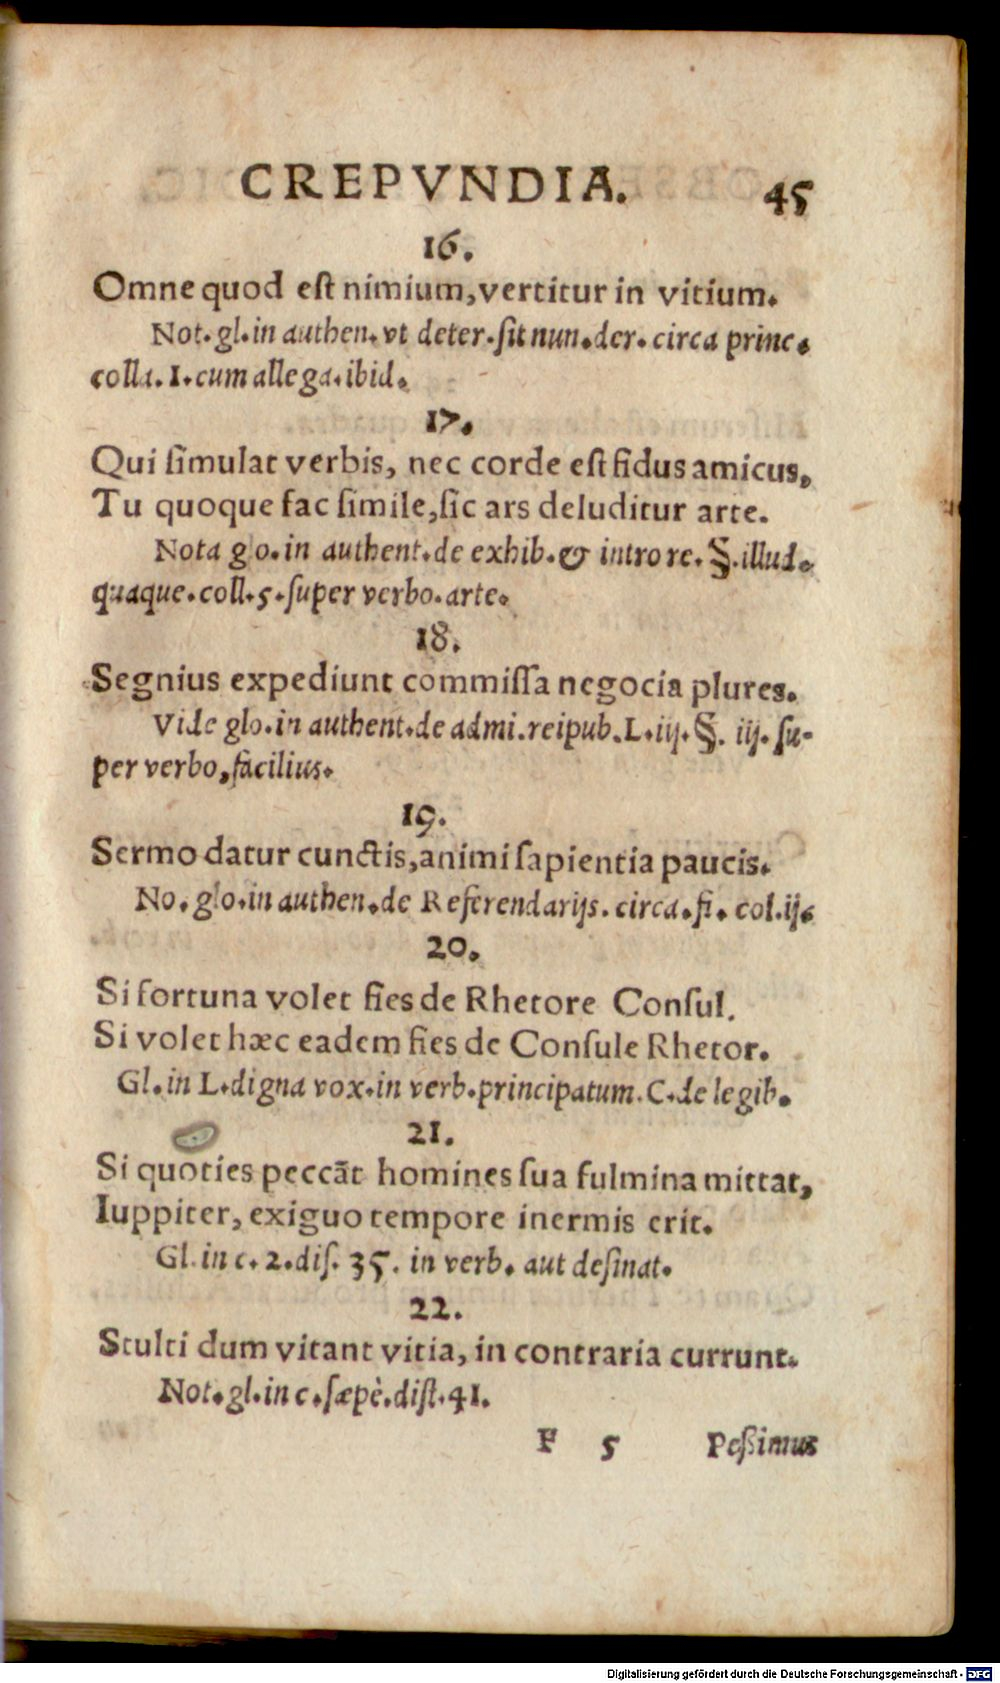 CREPVNDIA. 45
16.
Omne quod est nimium, vertitur in vitium.
Not. gl. in authen. vt deter. sit nun. der. circa princ.
colla. 1. cum allega. ibid.
17.
Qui simulat verbis, nec corde est fidus amicus,
Tu quoque fac simile, sic ars deluditur arte.
Nota glo. in authent. de exhib. & intro re. §. illud.
quaque. coll. 5. super verbo. arte.
18.
Segnius expediunt commissa negocia plures.
Vide glo. in authent. de admi. reipub. L. iij. §. iij. su-
per verbo, facilius.
19.
Sermo datur cunctis, animi sapientia paucis.
No. glo. in authen. de Referendarijs. circa. fi. col. ij.
20.
Si fortuna volet fies de Rhetore Consul.
Si volet hæc eadem fies de Consule Rhetor.
Gl. in L. digna vox. in verb. principatum. C. de legib.
21.
Si quoties peccāt homines sua fulmina mittat,
Iuppiter, exiguo tempore inermis erit.
Gl. in c. 2. dis. 35. in verb. aut desinat.
22.
Stulti dum vitant vitia, in contraria currunt.
Not. gl. in c. sæpè. dist. 41.
F 5 Peßimus
Digitalisierung gefördert durch die Deutsche Forschungsgemeinschaft - DFG